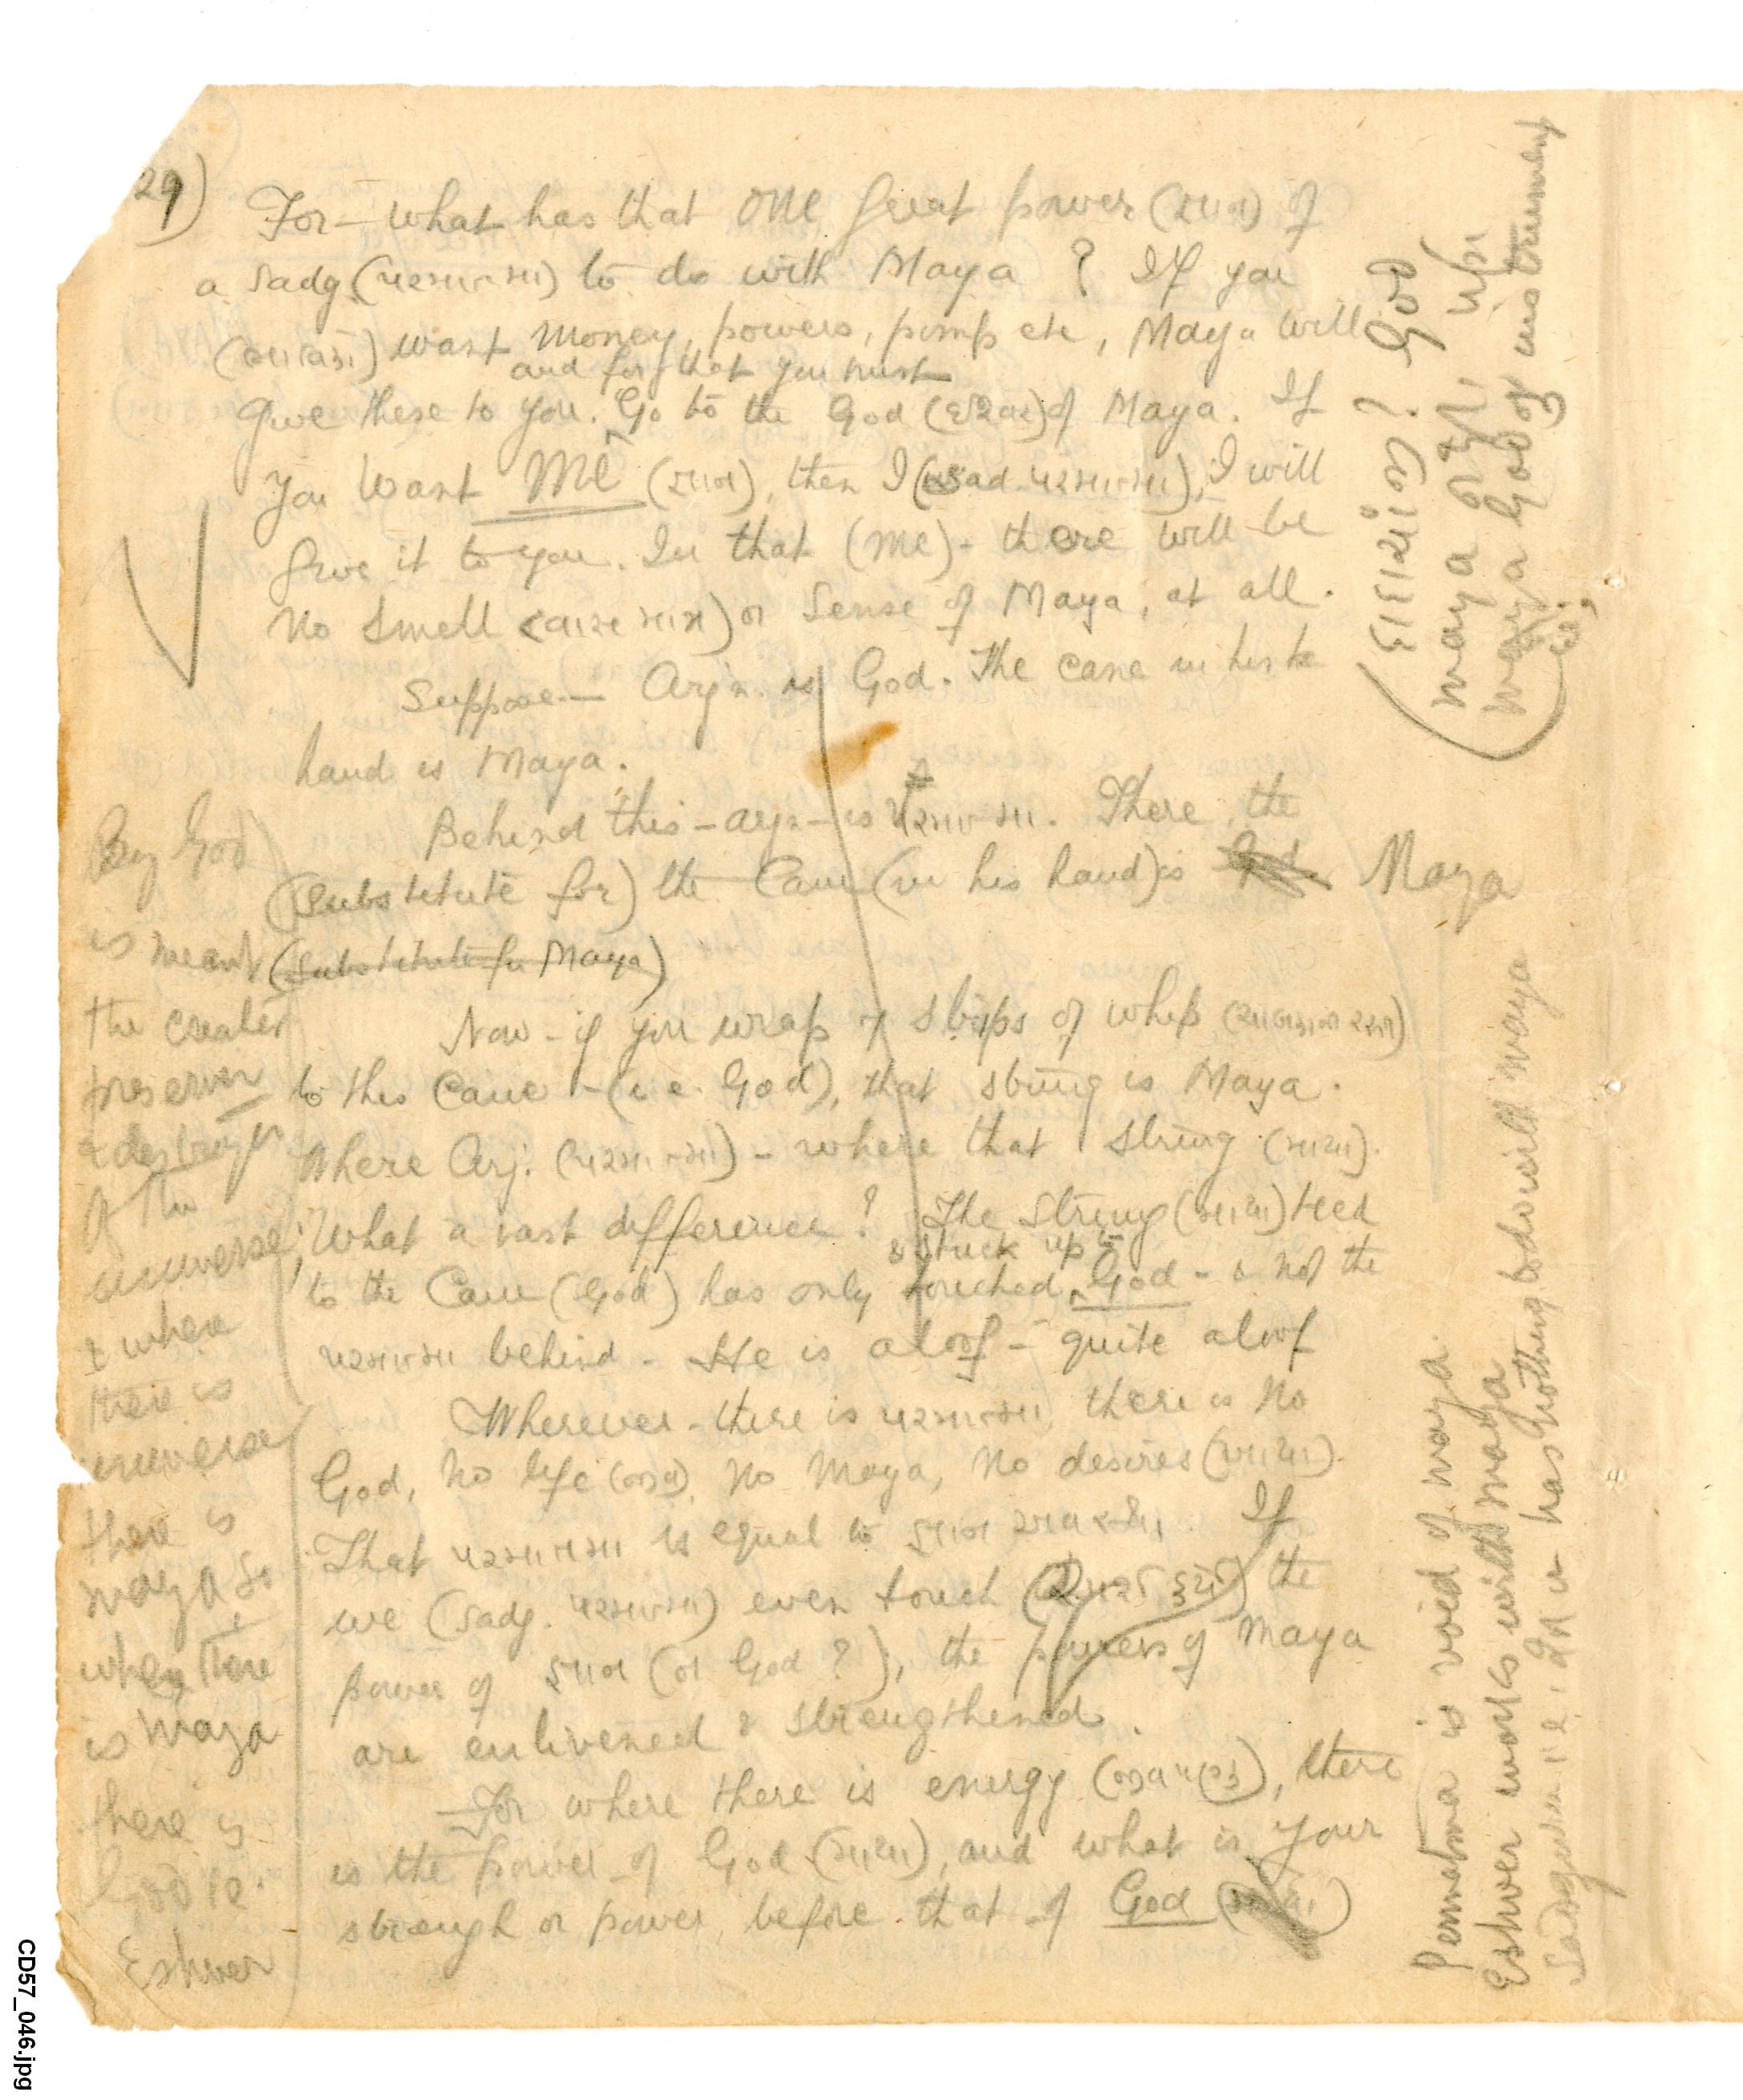 29)
For – what has that ONE great power (જ્ઞાન) of
a Sadg. (પરમાત્મા) to do with Maya ? If you
want money, powers, pomp etc, Maya will
and for that you must
give these to you. Go to the God (ઈશ્વર) of Maya. If
you want Me (જ્ઞાન), then I (Sad. પરમાત્મા), I will
give it to you. In that (Me) - there will be
no smell or sense of Maya, at all.
Suppose — Arjn. is God. The cane in his
hand is Maya.
Behind this – arjn – is પરમાત્મા. There, the
(substitute for) the Cane (in his hand) is Maya
(substitute for Maya)
Now - if you wrap strips of whip
to this Cane - (i.e. God), that string is Maya.
Where Arj. (પરમાત્મા) - where that string (માયા).
What a vast difference ? The string (માયા) tied
& stuck up to
to the Cane (God) has only touched God - & not the
પરમાત્મા behind - He is aloof - quite aloof
Wherever - there is પરમાત્મા, there is No
God, no life (જીવ), No Maya, No desires (માયા).
That પરમાત્મા is equal to જ્ઞાન સ્વરૂપ. If
we (Sadg. પરમાત્મા) even touch the
power of જ્ઞાન (or God ?), the powers of Maya
are enlivened & strengthened.
— For where there is energy, there
is the power of God (માયા), and what is your
strength or power before that of God
By God
is meant
the creator
preserver
& destroyer
of the
universe
& where
there is
universe
there is
maya &
where there
is maya
there is
God i.e.
Eshwer
? God
maya
maya God's instrument
Permatma is void of maya.
Eshwer works with maya
Sadguru i.e. has nothing to do with maya
CD57_046.jpg